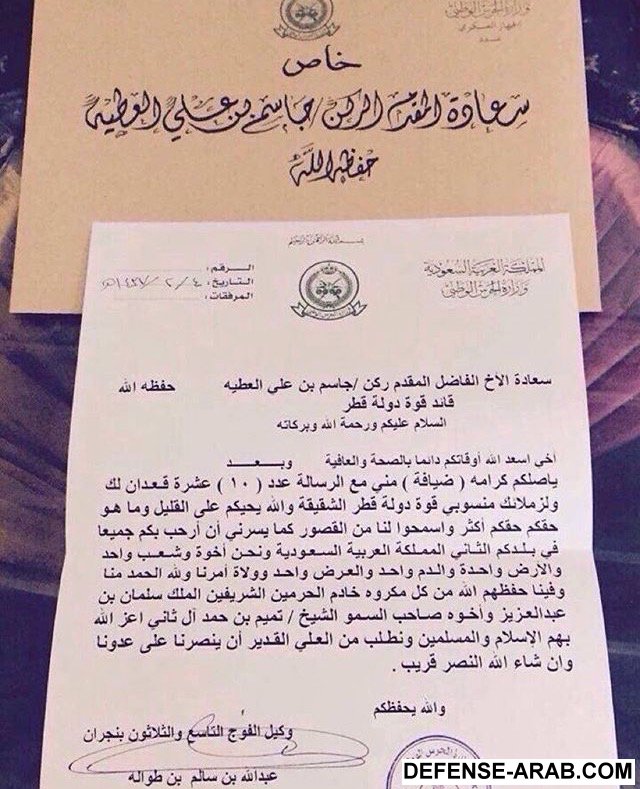 وزارة الحرس الوطني
الجهاز العسكري
خاص
سعادة المقدم الركن / جاسم بن علي العطيه
حفظه الله
بسم الله الرحمن الرحيم
المملكة العربية السعودية
وزارة الحرس الوطني
الـرقـم :
التاريخ : ١٤٣٧/٢/٤هـ
المرفقات :
سعادة الأخ الفاضل المقدم ركن /جاسم بن علي العطيه حفظه الله
قائد قوة دولة قطر
السلام عليكم ورحمة الله وبركاته
أخي اسعد الله أوقاتكم دائما بالصحة والعافية وبـــعـــد
ياصلكم كرامه ( ضيافة ) مني مع الرسالة عدد ( ١٠ ) عشرة قعدان لك
ولزملائك منسوبي قوة دولة قطر الشقيقة والله يحيكم على القليل وما هو
حقكم حقكم أكثر واسمحوا لنا من القصور كما يسرني أن أرحب بكم جميعا
في بلدكم الثاني المملكة العربية السعودية ونحن أخوة وشعب واحد
والارض واحدة والدم واحد والعرض واحد وولاة أمرنا ولله الحمد منا
وفينا حفظهم الله من كل مكروه خادم الحرمين الشريفين الملك سلمان بن
عبدالعزيز وأخوه صاحب السمو الشيخ / تميم بن حمد آل ثاني اعز الله
بهم الإسلام والمسلمين ونطلب من العلي القدير أن ينصرنا على عدونا
وان شاء الله النصر قريب .
والله يحفظكم
وكيل الفوج التاسع والثلاثون بنجران
عبدالله بن سالم بن طواله
DEFENSE-ARAB.COM